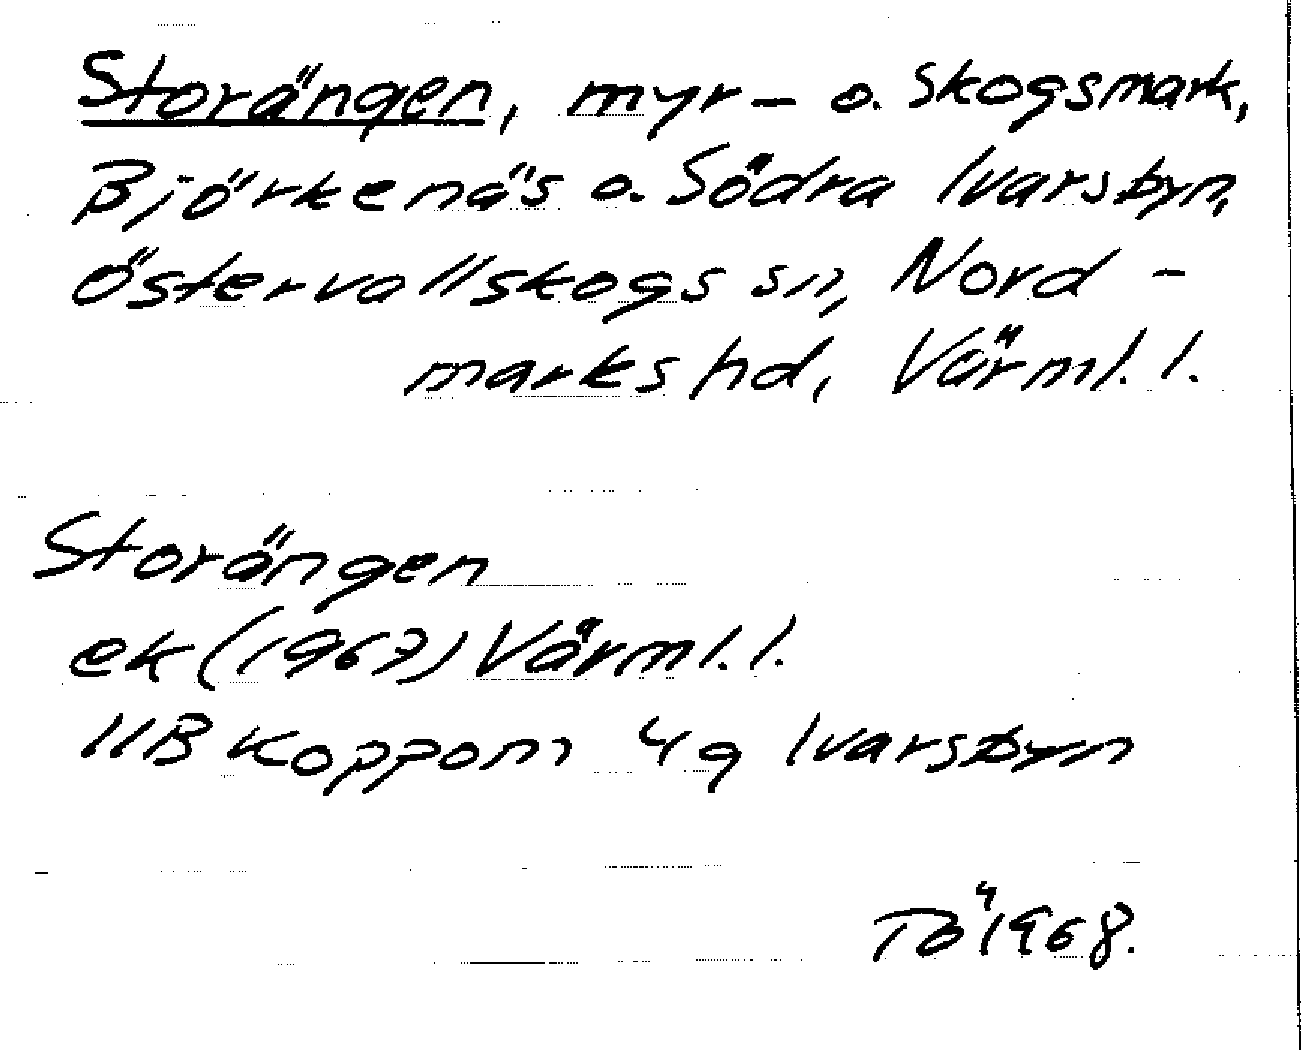 Storängen, myr- o. skogsmark,
Björkenäs o. Södra Ivarsbyn,
Östervallskogs sn, Nord-
marks hd, Värml. l.
Storängen
ek (1967) Värml. l.
11B Koppom 4g Ivarsbyn
TÖ 1968.